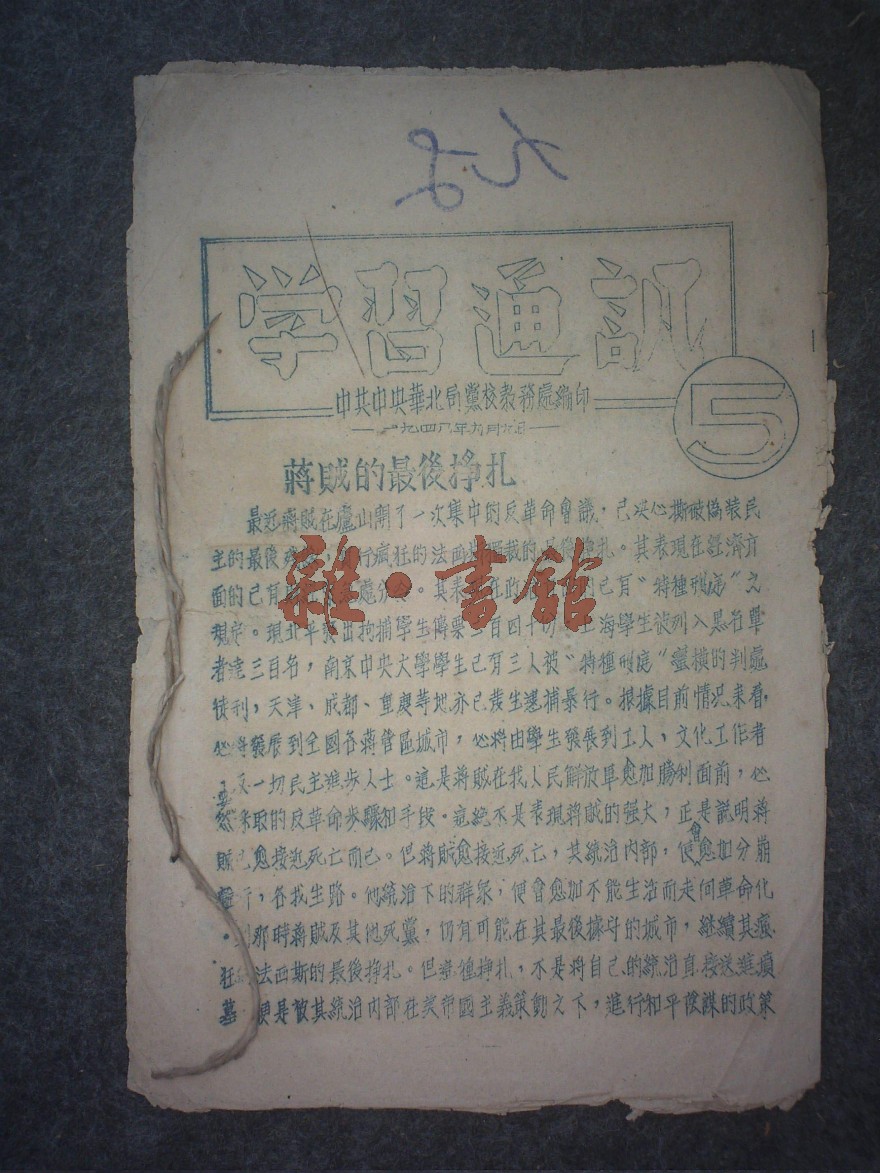 学習通訊
中共中央華北局黨校教務處編印
一九四八年九月九日
5
蔣賊的最後掙扎
最近蔣賊在廬山開了一次集中的反革命會議，已决心撕破偽装民
主的最後 ，行瘋狂的法西 裁的最後掙扎。其表現在經濟方
面的已有 處分 。其表現在政 的已有“特種刑庭”之
規定。現北平 出拘捕學生傳票二百四十 上海學生被列入黑名單
者達三百名，南京中央大學學生已有三人被“特種刑庭”蠻横的判處
徒刑，天津、成都、重慶等地亦已發生逮捕暴行。根據目前情况来看，
必將發展到全國各蔣管區城市，必將由學生發展到工人，文化工作者
及一切民主進步人士。這是蔣賊在我人民解放軍愈加勝利面前，必
然采取的反革命步驟和手段。這絶不是表現蔣賊的强大，正是説明蔣
賊已愈接近死亡而已。但蔣賊愈接近死亡，其統治内部，便會愈加分崩
離析，各找生路。他統治下的群衆，便會愈加不能生活而走向革命化
。到那時蔣賊及其他死黨，仍有可能在其最後據守的城市，継續其瘋
狂的法西斯的最後掙扎。但這種掙扎，不是将自己的統治直接送進墳
墓，便是被其統治内部在美帝國主義策動之下，進行和平陰謀的政策
雜·書館